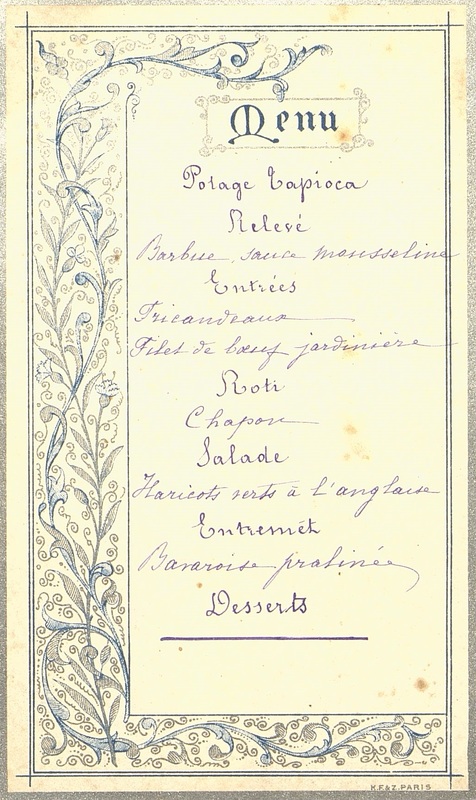 Menu
Potage Tapioca
Relevé
Barbue, sauce mousseline
Entrées
Fricandeaux
Filet de bœuf jardinière
Roti
Chapon
Salade
Haricots verts à l'anglaise
Entremét
Bavaroise pralinée
Desserts
K.F.&Z. PARIS